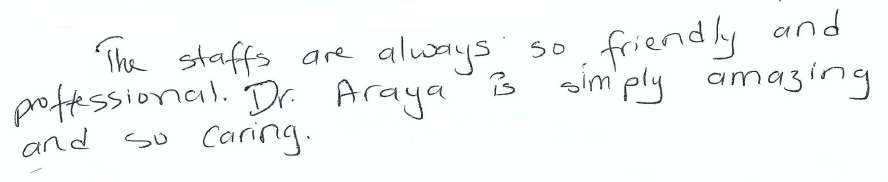 The staffs are always so friendly and
proffessional. Dr. Araya is simply amazing
and so caring.